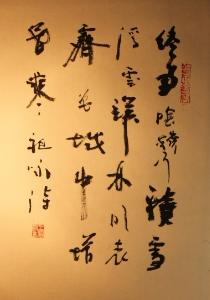 终南阴岭秀积雪
浮云端林表明霁色
城中增
暮寒 祖咏诗